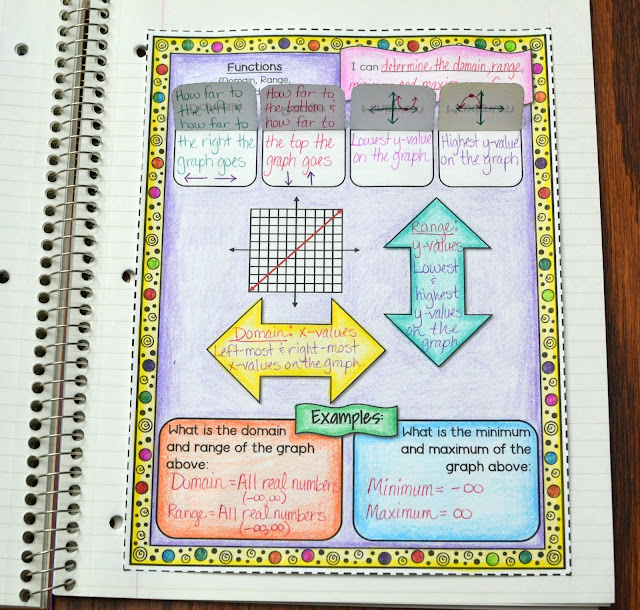 Functions
(Domain, Range,
I can determine the domain, range,
How far to
the left &
how far to
the right the
graph goes
How far to
the bottom &
how far to
the top the
graph goes
Lowest y-value
on the graph
Highest y-value
on the graph
Range:
y-values
Lowest
&
highest
y-values
on the
graph
Domain: x-values
Left-most & right-most
x-values on the graph
Examples:
What is the domain
and range of the graph
above:
Domain = All real numbers
(-∞,∞)
Range = All real numbers
(-∞,∞)
What is the minimum
and maximum of the
graph above:
Minimum = -∞
Maximum = ∞